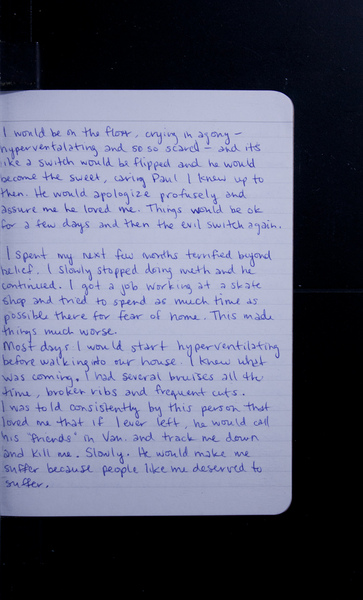 I would be on the floor, crying in agony -
hyperventalating and so so scared - and its
like a switch would be flipped and he would
become the sweet, caring Paul I knew up to
then. He would apologize profusely and
assure me he loved me. Things would be ok
for a few days and then the evil switch again.
I spent my next few months terrified beyond
belief. I slowly stopped doing meth and he
continued. I got a job working at a skate
shop and tried to spend as much time as
possible there for fear of home. This made
things much worse.
Most days I would start hyperventilating
before walking into our house. I knew what
was coming. I had several bruises all the
time, broken ribs and frequent cuts.
I was told consistently by this person that
loved me that if I ever left, he would call
his "friends" in Van. and track me down
and kill me. Slowly. He would make me
suffer because people like me deserved to
suffer.